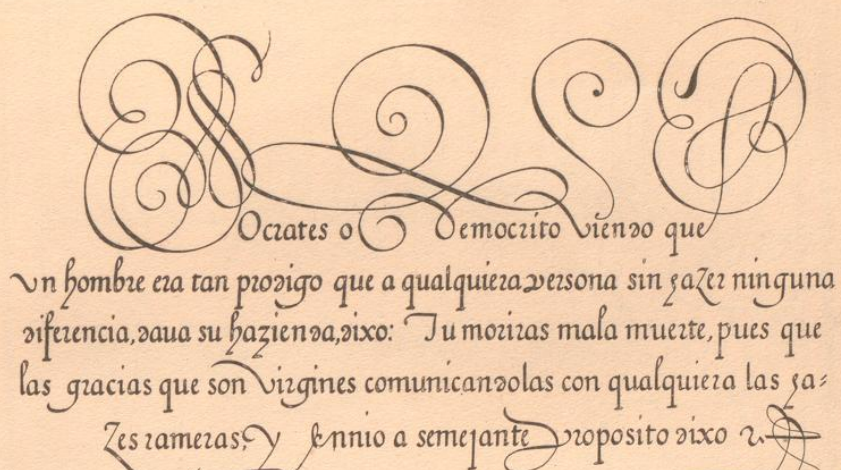 Socrates o Democrito viendo que
vn hombre era tan prodigo que a qualquiera persona sin hazer ninguna
diferencia, daua su hazienda, dixo: Tu moriras mala muerte, pues que
las gracias que son virgines comunicandolas con qualquiera las ha=
zes rameras; Y Ennio a semejante proposito dixo